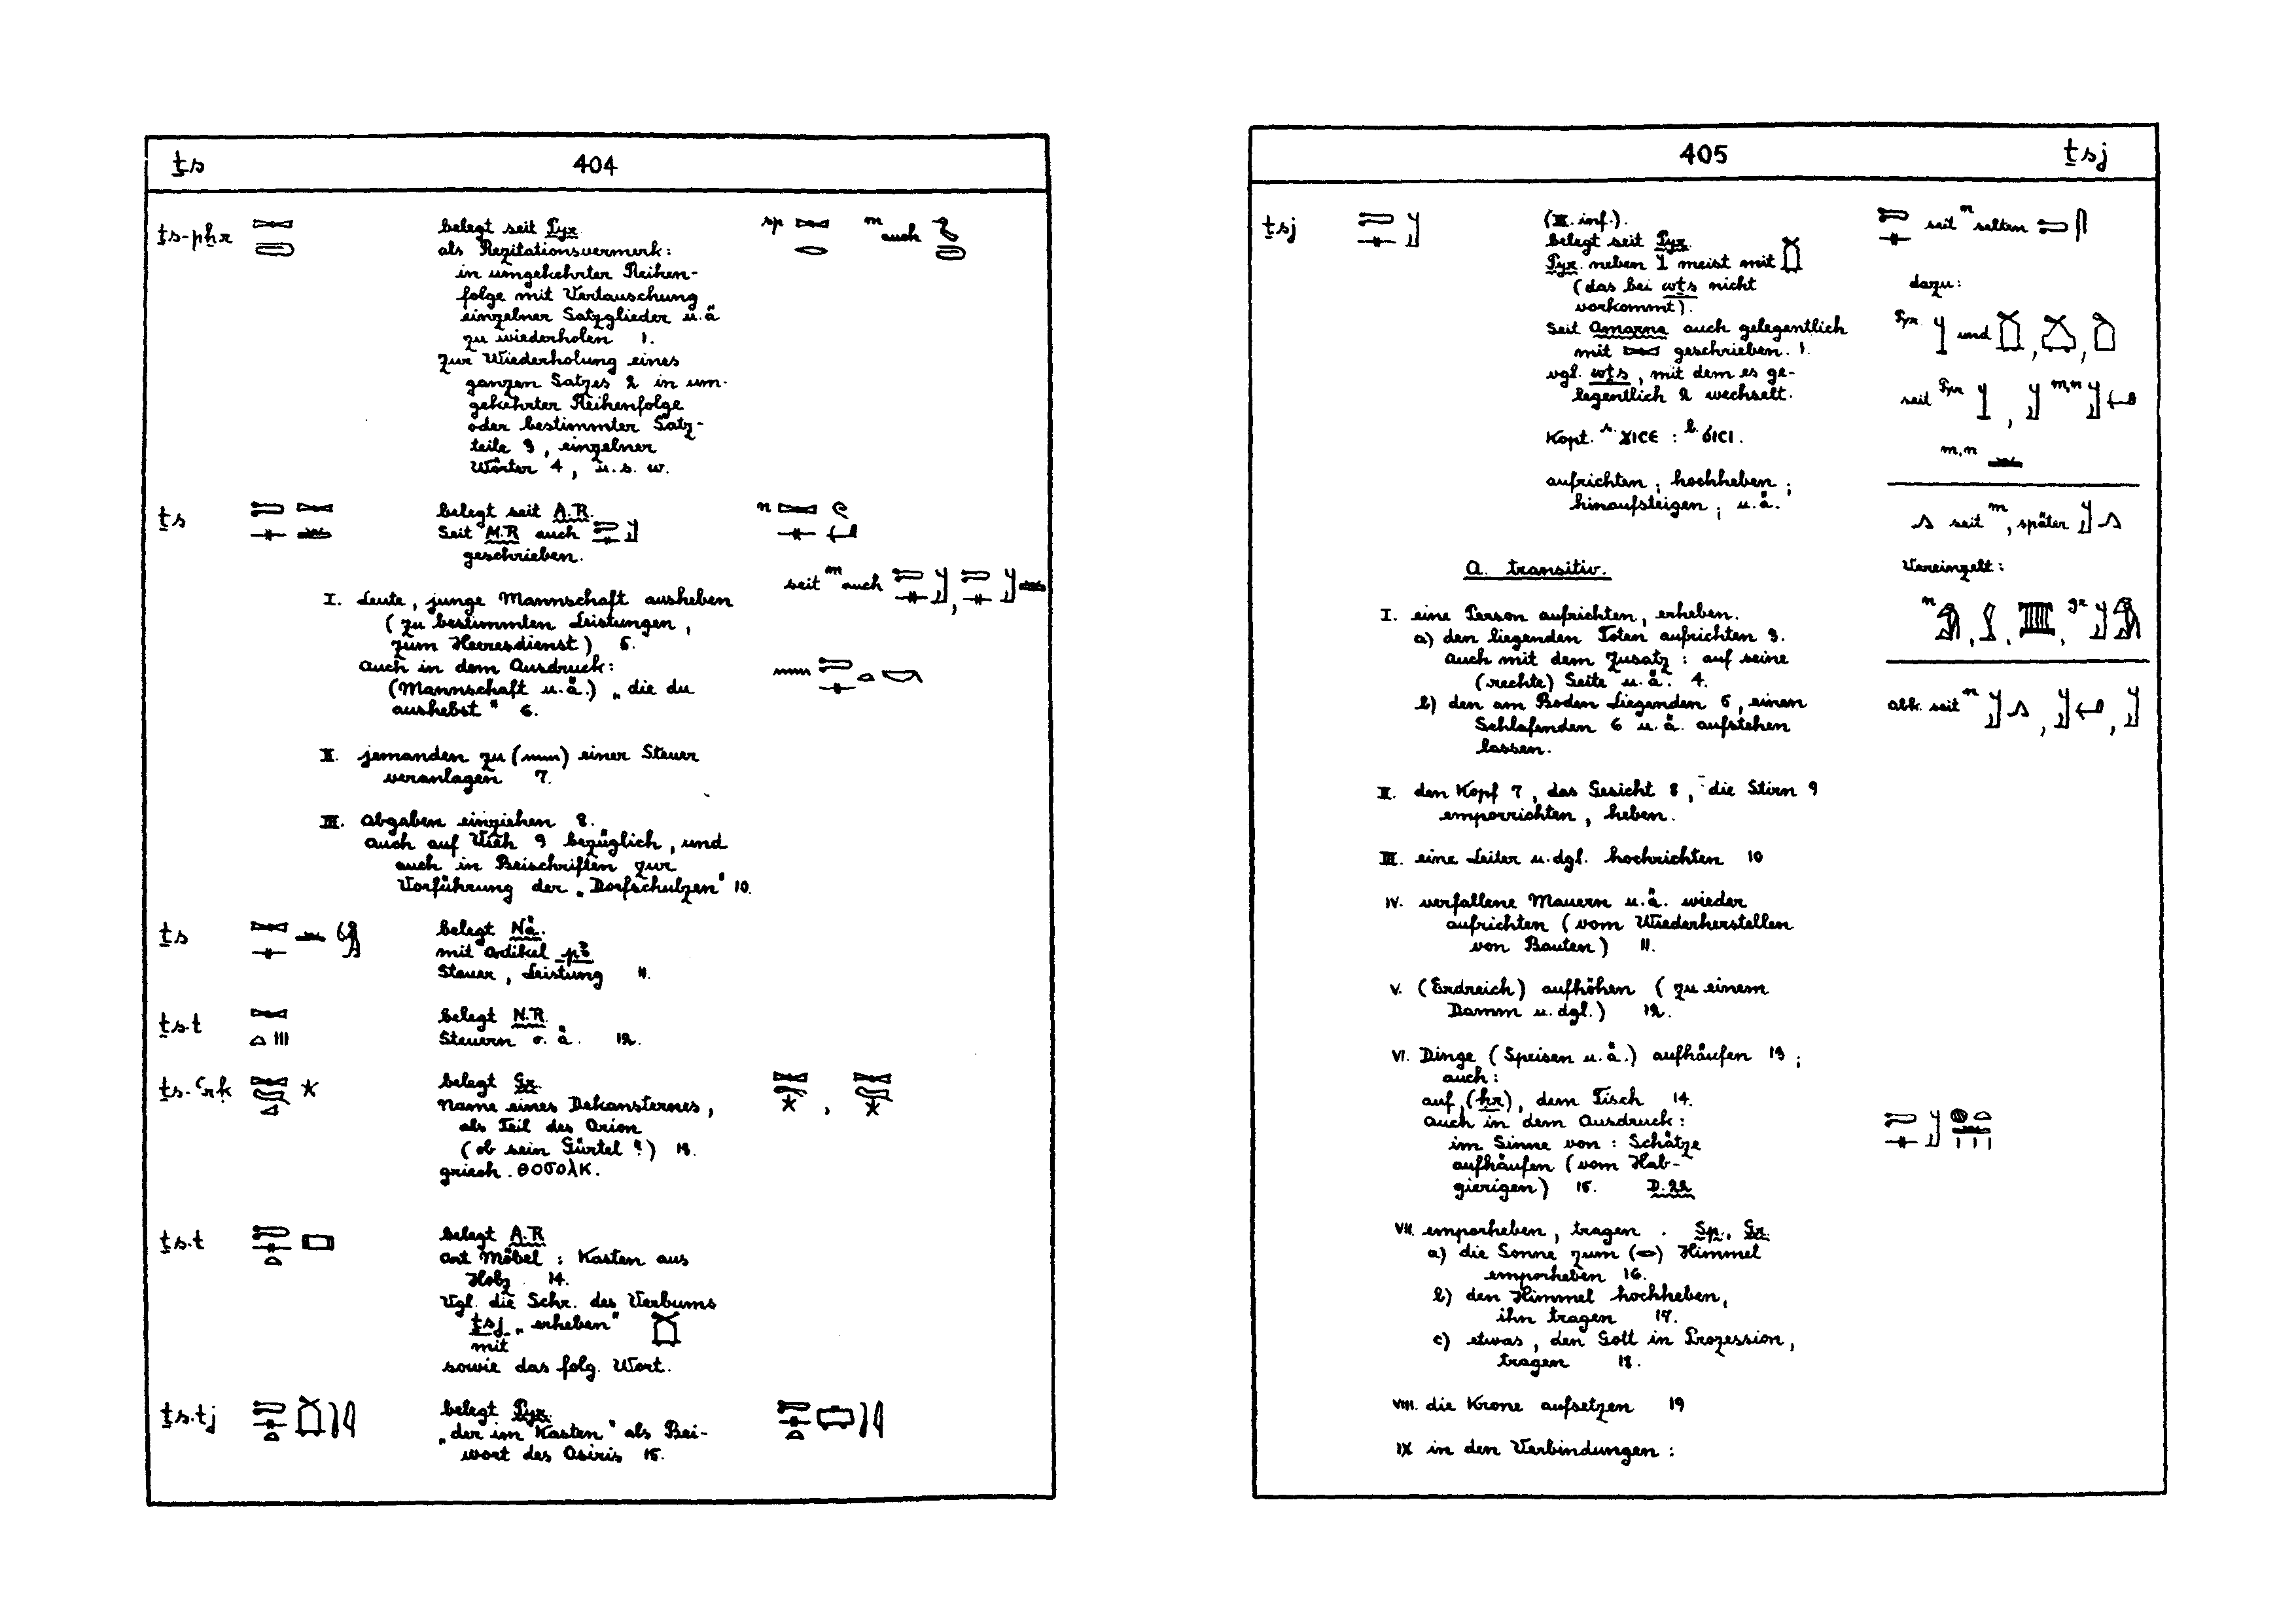 ṯs
404
ṯs-pẖr
belegt seit Pyr.
als Rezitationsvermerk:
in umgekehrter Reihen-
folge mit Vertauschung
einzelner Satzglieder u.ä
zu wiederholen 1.
zur Wiederholung eines
ganzen Satzes 2 in um-
gekehrter Reihenfolge
oder bestimmter Satz-
teile 3, einzelner
Wörter 4, u.s.w.
sp
m auch
ṯs
belegt seit A.R.
Seit M.R auch
geschrieben.
n
seit m auch
I. Leute, junge Mannschaft ausheben
(zu bestimmten Leistungen,
zum Heeresdienst) 5.
auch in dem Ausdruck:
(Mannschaft u.ä.) „die du
aushebst" 6.
II. jemanden zu ( ) einer Steuer
veranlagen 7.
III. Abgaben einziehen 8.
auch auf Vieh 9 bezüglich, und
auch in Beischriften zur
Vorführung der „Dorfschulzen" 10.
ṯs
belegt Nä.
mit Artikel pꜣ
Steuer, Leistung 11.
ṯs.t
belegt N.R.
Steuern o.ä. 12.
ṯs-ꜥrḳ
belegt Gr.
Name eines Dekansternes,
als Teil des Orion
(ob sein Gürtel?) 13.
griech. ΘΟσολκ.
ṯs.t
belegt A.R
Art Möbel: Kasten aus
Holz 14.
Vgl. die Schr. des Verbums
ṯsj „erheben"
mit
sowie das folg. Wort.
ṯs.tj
belegt Pyr.
„der im Kasten" als Bei-
wort des Osiris 15.
405
ṯsj
ṯsj
(III. inf.).
belegt seit Pyr.
Pyr. neben meist mit
(das bei wṯs nicht
vorkommt).
Seit Amarna auch gelegentlich
mit geschrieben. 1.
vgl. wṯs, mit dem es ge-
legentlich 2 wechselt.
Kopt. s. ϫⲓⲥⲉ : b. ϭⲓⲥⲓ.
aufrichten; hochheben;
hinaufsteigen; u.ä.
seit m selten
dazu:
Pyr. und
seit Pyr m,n
m,n
seit m, später
Vereinzelt:
n gr
abk. seit n
A. transitiv.
I. eine Person aufrichten, erheben.
a) den liegenden Toten aufrichten 3.
auch mit dem Zusatz: auf seine
(rechte) Seite u.ä. 4.
b) den am Boden Liegenden 5, einen
Schlafenden 6 u.ä. aufstehen
lassen.
II. den Kopf 7, das Gesicht 8, die Stirn 9
emporrichten, heben.
III. eine Leiter u.dgl. hochrichten 10
IV. verfallene Mauern u.ä. wieder
aufrichten (vom Wiederherstellen
von Bauten) 11.
V. (Erdreich) aufhöhen (zu einem
Damm u.dgl.) 12.
VI. Dinge (Speisen u.ä.) aufhäufen 13;
auch:
auf (ḥr), dem Tisch 14.
Auch in dem Ausdruck:
im Sinne von: Schätze
aufhäufen (vom Hab-
gierigen) 15. D.22
VII. emporheben, tragen. Sp., Gr.
a) die Sonne zum ( ) Himmel
emporheben 16.
b) den Himmel hochheben,
ihn tragen 17.
c) etwas, den Gott in Prozession,
tragen 18.
VIII. die Krone aufsetzen 19
IX in den Verbindungen: